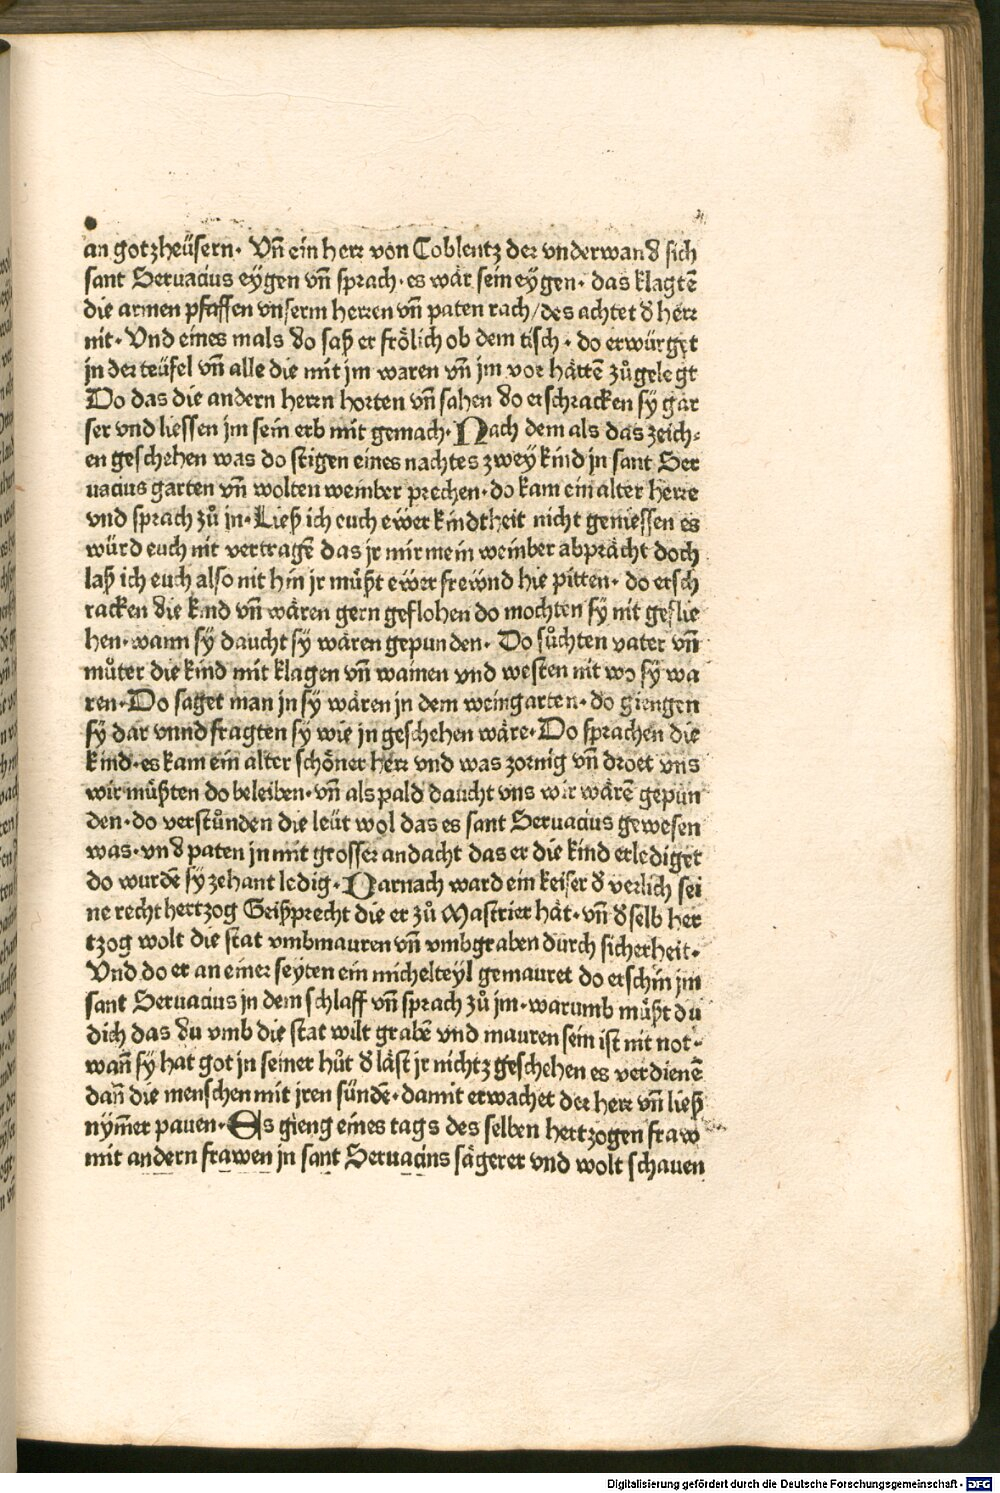 an gotzheüsern· Vñ ein herr von Coblentz der vnderwand sich
sant Seruacius eygen vñ sprach· es wär sein eygen· das klagtẽ
die armen pfaffen vnserm herren vñ paten rach/ des achtet d herr
nit· Vnd eines mals do saß er frölich ob dem tisch· do erwürget
jn der teüfel vñ alle die mit jm waren vñ jm vor hättẽ zůgelegt
Do das die andern herrn horten vñ sahen do erschracken sy gar
ser vnd liessen im sein erb mit gemach· Nach dem als das zeich⸗
en geschehen was do stigen eines nachtes zwey kind jn sant Ser
uacius garten vñ wolten weinber prechen· do kam ein alter herre
vnd sprach zů jn· Ließ ich euch ewer kindtheit nicht geniessen es
würd euch nit vertragẽ das jr mir mein weinber abprächt doch
laß ich euch also nit hin jr můßt ewer frewnd hie pitten· do ersch
racken die kind vñ wären gern geflohen do mochten sy nit geflie
hen· wann sy daucht sy wären gepunden· Do sůchten vater vñ
můter die kind mit klagen vñ wainen vnd westen nit wo sy wa
ren· Do saget man jn sy wären jn dem weingarten· do giengen
sy dar vnnd fragten sy wie jn geschehen wäre· Do sprachen die
kind· es kam ein alter schöner herr vnd was zornig vñ droet vns
wir müßten do beleiben· vñ als pald daucht vns wir wärẽ gepun
den· do verstůnden die leüt wol das es sant Seruacius gewesen
was· vnd paten jn mit grosser andacht das er die kind erlediget
do wurdẽ sy zehant ledig· Darnach ward ein keiser d verlich sei
ne recht hertzog Geißprecht die er zů Mastrier hät· vñ dselb her
tzog wolt die stat vmbmauren vñ vmbgraben durch sicherheit·
Vnd do er an einer seyten ein michelteyl gemauret do erschin jm
sant Seruacius jn dem schlaff vñ sprach zů jm· warumb müßt du
dich das du vmb die stat wilt grabẽ vnd mauren sein ist nit not·
wañ sy hat got jn seiner hůt d läst jr nichtz geschehen es verdienẽ
dañ die menschen mit jren sündẽ· damit erwachet der herr vñ ließ
nym̃er pauen· Es gieng eines tags des selben hertzogen fraw
mit andern frawen jn sant Seruacius sägerer vnd wolt schauen
Digitalisierung gefördert durch die Deutsche Forschungsgemeinschaft · DFG